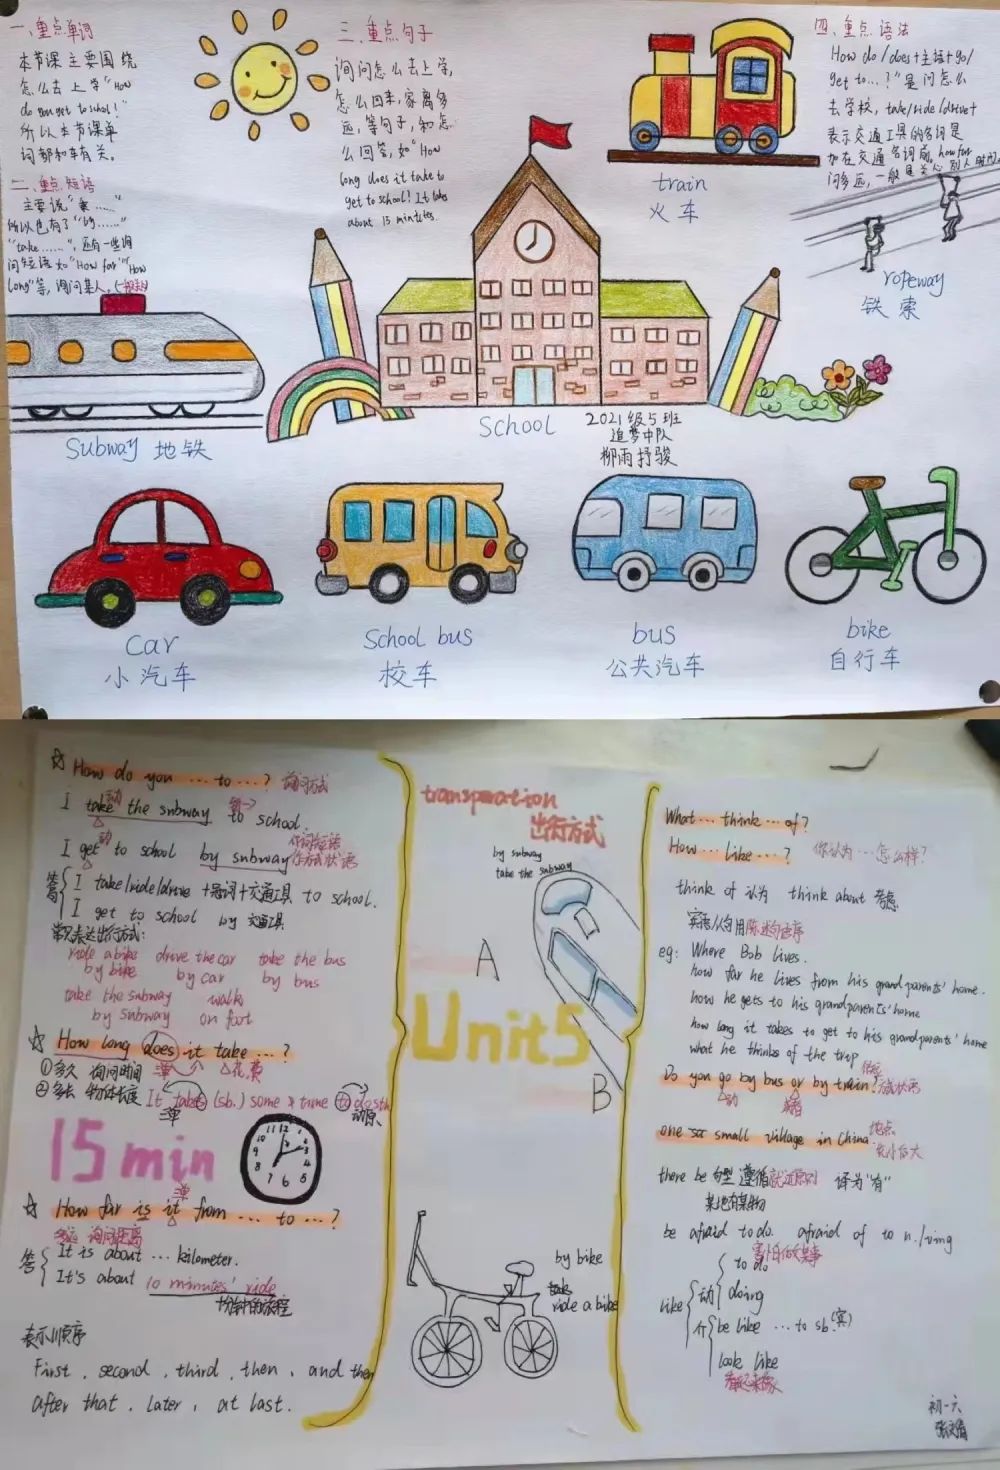 一、重点单词
本节课主要围绕
怎么去上学"How
do you get to school!"
所以本节课单
词都和车有关。
二、重点短语
主要说"乘……"
所以也有了"by……"
"take……",还有一些询
问短语如"How far""How
long"等,询问某人
三、重点句子
询问怎么去上学,
怎么回来,家离多
远,等句子,和怎
么回答,如"How
long does it take to
get to school! It takes
about 15 mintutes.
四、重点语法
How do/does+主语+go/
get to…?"是问怎么
去学校, take/ride/drive+
表示交通工具的名词是
加在交通名词前, how far
问多远,一般是关心别人时问
train
火车
ropeway
铁索
Subway 地铁
School
2021级5班
追梦中队
柳雨抒骏
car
小汽车
School bus
校车
bus
公共汽车
bike
自行车
☆ How do you … to …? 询问方式
I take the subway to school.
动
I get to school by subway
动
介词短语
作方式状语
答 I take/ride/drive +冠词+交通工具 to school.
I get to school by 交通工具
常见表达出行方式:
ride a bike drive the car take the bus
by bike by car by bus
take the subway walk
by subway on foot
☆ How long does it take …?
①多久 询问时间 花费
②多长 物体长度 It takes (sb.) some time to do sth
三单 动原
15 min
☆ How far is it from … to …?
多远 询问距离
答 It is about … kilometer.
It's about 10 minutes' ride
十分钟的旅程
表示顺序
First, second, third, then, and then
after that, later, at last.
transperation
出行方式
by subway
take the subway
A
Unit5
B
by bike
ride a bike
What … think … of?
How … like …? 你认为…怎么样?
think of 认为 think about 考虑
宾语从句用陈述句语序
eg: Where Bob lives.
how far he lives from his grandparents' home.
how he gets to his grandparents' home
how long it takes to get to his grandparents' home
what he thinks of the trip
Do you go by bus or by train?
方式状语
动
one small village in China. 地点
从小到大
there be 句型 遵循就近原则 译为"有"
某地有某物
be afraid to do. afraid of to n./ving
害怕做某事
like 动 to do
doing
介 be like … to sb.(宾)
look like
看起来像
初一六